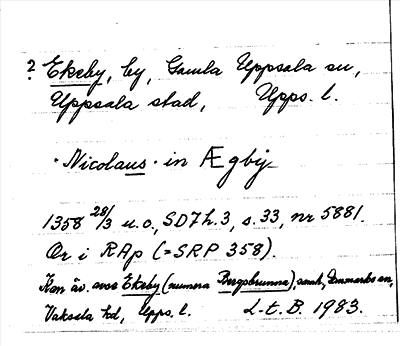 ? Ekeby, by, Gamla Uppsala sn,
Uppsala stad, Upps. l.
· Nicolaus · in Ægbÿ
1358 28/3 u.o., SD 7 h. 3, s. 33, nr 5881.
Or i RAp (= SRP 358).
Kan äv. avse Ekeby (numera Bergsbrunna) samh., Danmarks sn,
Vaksala hd, Upps. l. L-t. B. 1983.